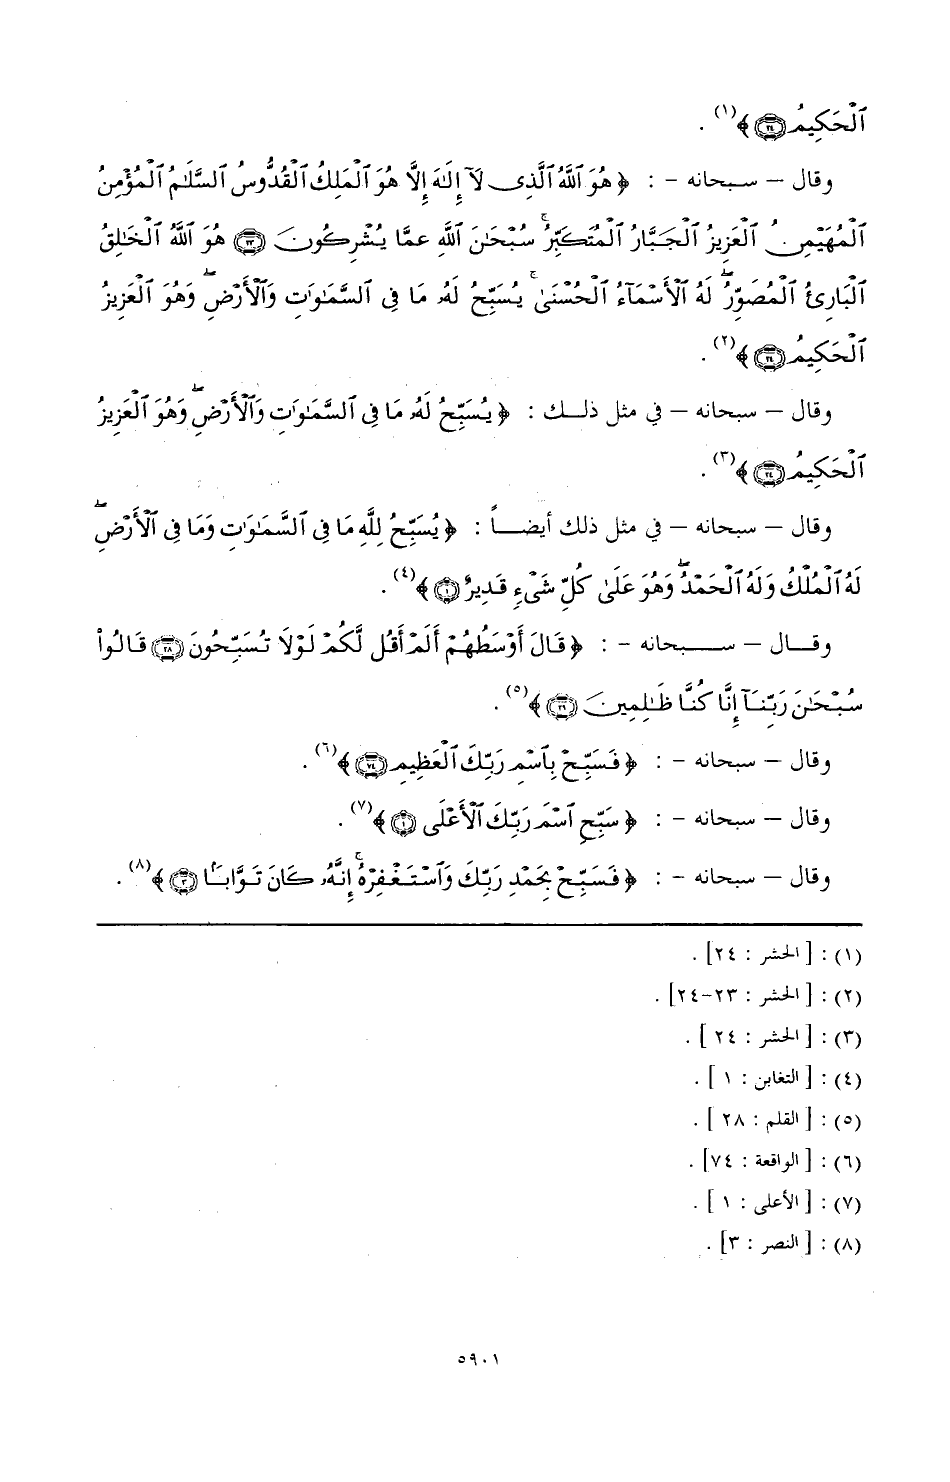 ٱلْحَكِيمُ ﴿٢٤﴾ ﴾(١) .
وقال – سبحانه – : ﴿ هُوَ ٱللَّهُ ٱلَّذِى لَآ إِلَٰهَ إِلَّا هُوَ ٱلْمَلِكُ ٱلْقُدُّوسُ ٱلسَّلَٰمُ ٱلْمُؤْمِنُ
ٱلْمُهَيْمِنُ ٱلْعَزِيزُ ٱلْجَبَّارُ ٱلْمُتَكَبِّرُ ۚ سُبْحَٰنَ ٱللَّهِ عَمَّا يُشْرِكُونَ ﴿٢٣﴾ هُوَ ٱللَّهُ ٱلْخَٰلِقُ
ٱلْبَارِئُ ٱلْمُصَوِّرُ ۖ لَهُ ٱلْأَسْمَآءُ ٱلْحُسْنَىٰ ۚ يُسَبِّحُ لَهُۥ مَا فِى ٱلسَّمَٰوَٰتِ وَٱلْأَرْضِ ۖ وَهُوَ ٱلْعَزِيزُ
ٱلْحَكِيمُ ﴿٢٤﴾ ﴾(٢) .
وقال – سبحانه – في مثل ذلك : ﴿ يُسَبِّحُ لَهُۥ مَا فِى ٱلسَّمَٰوَٰتِ وَٱلْأَرْضِ ۖ وَهُوَ ٱلْعَزِيزُ
ٱلْحَكِيمُ ﴿٢٤﴾ ﴾(٣) .
وقال – سبحانه – في مثل ذلك أيضاً : ﴿ يُسَبِّحُ لِلَّهِ مَا فِى ٱلسَّمَٰوَٰتِ وَمَا فِى ٱلْأَرْضِ ۖ
لَهُ ٱلْمُلْكُ وَلَهُ ٱلْحَمْدُ ۖ وَهُوَ عَلَىٰ كُلِّ شَىْءٍ قَدِيرٌ ﴿١﴾ ﴾(٤) .
وقال – سبحانه – : ﴿ قَالَ أَوْسَطُهُمْ أَلَمْ أَقُل لَّكُمْ لَوْلَا تُسَبِّحُونَ ﴿٢٨﴾ قَالُوا۟
سُبْحَٰنَ رَبِّنَآ إِنَّا كُنَّا ظَٰلِمِينَ ﴿٢٩﴾ ﴾(٥) .
وقال – سبحانه – : ﴿ فَسَبِّحْ بِٱسْمِ رَبِّكَ ٱلْعَظِيمِ ﴿٧٤﴾ ﴾(٦) .
وقال – سبحانه – : ﴿ سَبِّحِ ٱسْمَ رَبِّكَ ٱلْأَعْلَى ﴿١﴾ ﴾(٧) .
وقال – سبحانه – : ﴿ فَسَبِّحْ بِحَمْدِ رَبِّكَ وَٱسْتَغْفِرْهُ ۚ إِنَّهُۥ كَانَ تَوَّابًۢا ﴿٣﴾ ﴾(٨) .
(١) : [ الحشر : ٢٤] .
(٢) : [ الحشر : ٢٣-٢٤] .
(٣) : [ الحشر : ٢٤ ] .
(٤) : [ التغابن : ١ ] .
(٥) : [ القلم : ٢٨ ] .
(٦) : [ الواقعة : ٧٤] .
(٧) : [ الأعلى : ١ ] .
(٨) : [ النصر : ٣] .
٥٩٠١